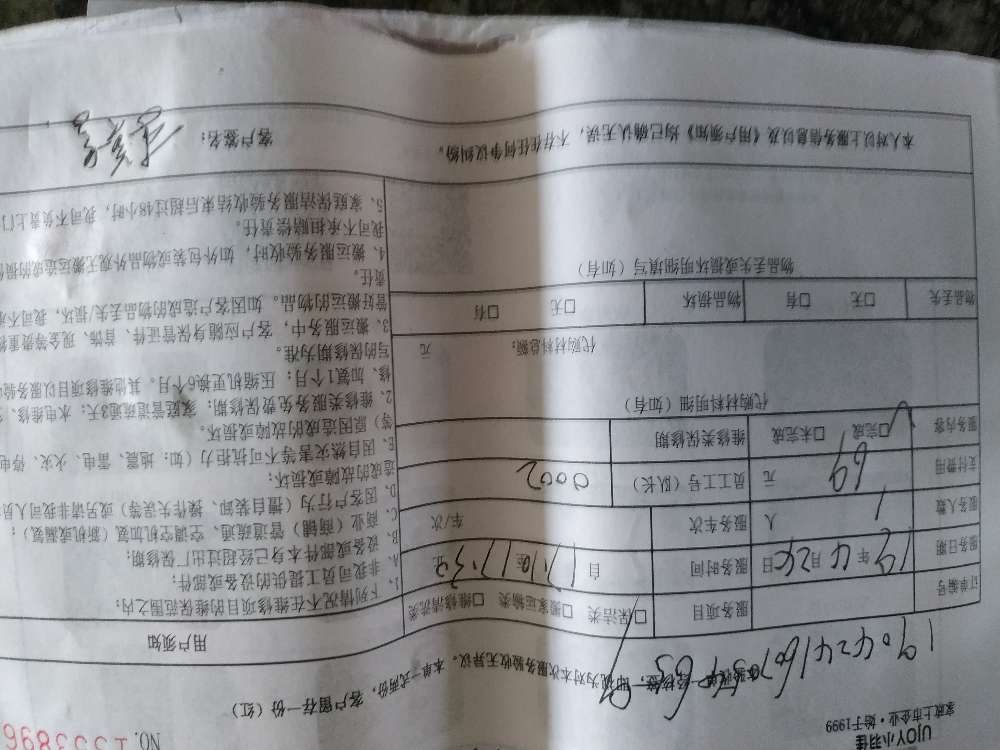 UJOY小羽佳
家政上市企业·始于1999
NO.
视为对本次服务验收无异议。本单一式两份，客户留存一份（红）
订单编号
服务项目 □保洁类 □搬家运输类 □维修清洗类
服务日期 19 年 4 月 日 服务时间 自 17:10 至 17:30
服务人数 1 人 服务车次 车/次
支付费用 69 元 员工工号（队长） 0002
服务内容 □完成 □未完成 维修类保修期
代购材料明细（如有）
代购材料总额： 元
物品丢失 □无 □有 物品损坏 □无 □有
物品丢失或损坏明细填写（如有）
用户须知
1、下列情况不在维修项目的维保范围之内：
A、非我司员工提供的设备或部件；
B、设备或部件本身已经超过出厂保修期；
C、商业（商铺）管道疏通、空调空机加氟（新机或漏氟）；
D、因客户行为（擅自装卸、操作失误等）或另请非我司人员
造成的故障或损坏；
E、因自然灾害等不可抗拒力（如：地震、雷电、火灾、停电
等）原因造成的故障或损坏。
2、维修类服务免费保修期：家庭管道疏通3天；水电维修、
修、加氟1个月；压缩机更换6个月。其他维修项目以服务
写的保修期为准。
3、搬运服务中，客户应随身保管证件、首饰、现金等贵重
管好搬运的物品。如因客户造成的物品丢失/损坏，我司不
责任。
4、搬运服务验收时，如外包装或物品外观无搬运造成的损
我司不承担赔偿责任。
5、家庭保洁服务验收结束后超过48小时，我司不负责上门
本人对以上服务信息以及《用户须知》均已确认无误，不存在任何争议纠纷。 客户签名：